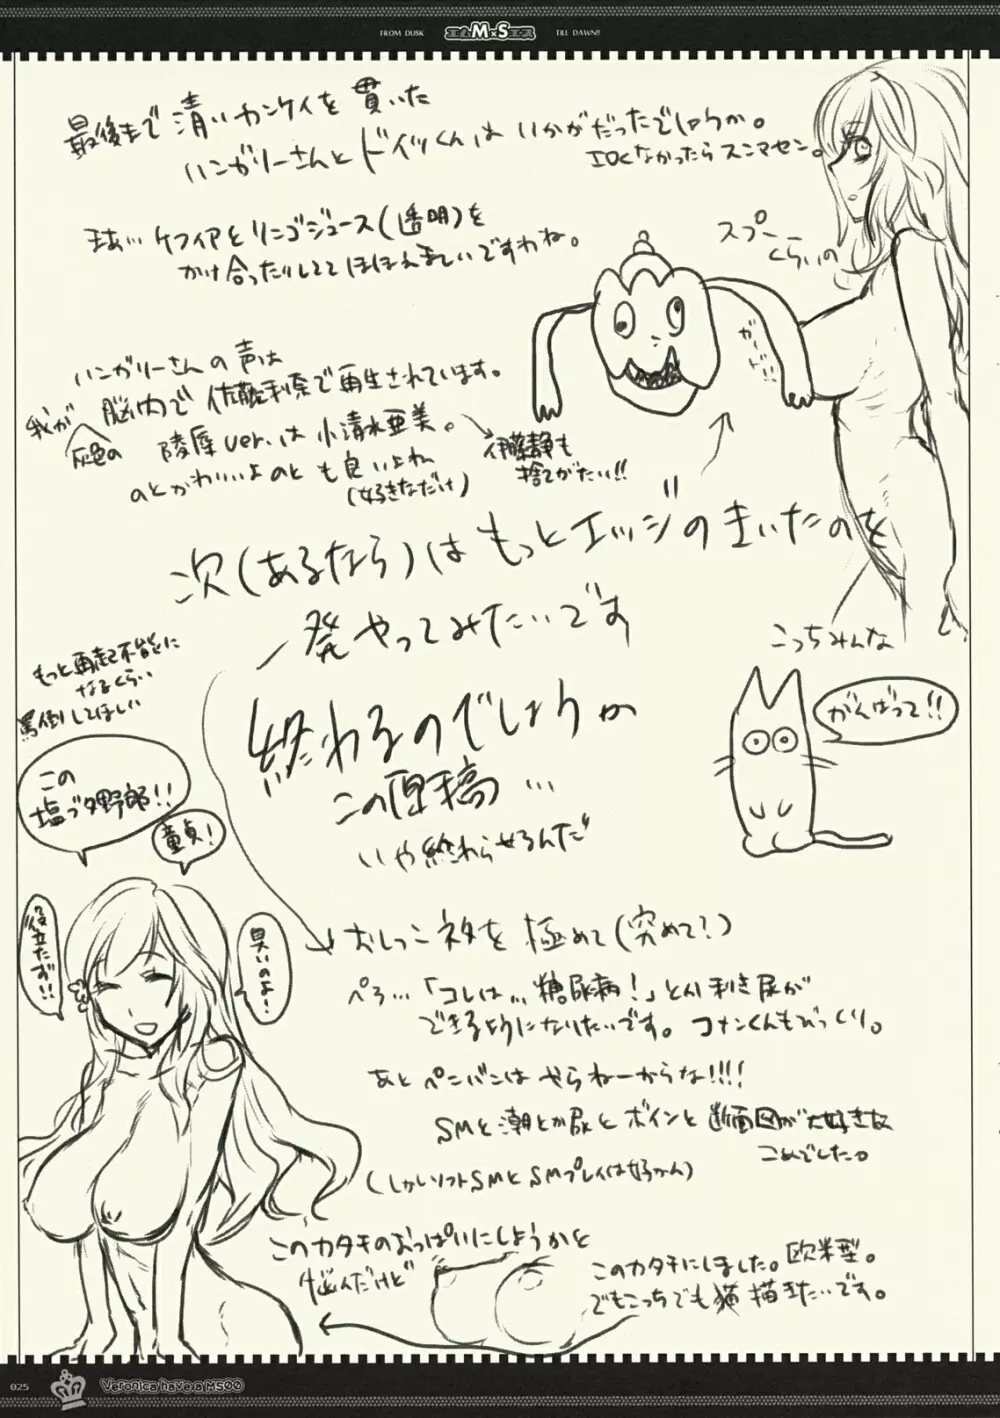 FROM DUSK
エムM×Sエス
TILL DAWN!!
最後まで清いカンケイを貫いた
ハンガリーさんとドイツくんはいかがだったでしょうか。
エロくなかったらスミマセン。
まあ…ケフィアとリンゴジュース(透明)を
かけ合ったりしててほほえましいですわね。
スプー
くらいの
ハンガリーさんの声は
我が
灰色の
脳内で佐藤利奈で再生されています。
陵辱ver.は小清水亜美。
伊藤静も
捨てがたい!!
のとかわいいよのとも良いよね
(好きなだけ)
次(あるなら)はもっとエッジのきいたのを
一発やってみたいです
終わるのでしょうか
この原稿…
いや終わらせるんだ
こっちみんな
がんばって!!
もっと再起不能に
なるくらい
罵倒してほしい
この
塩ブタ野郎!!
童貞!
役立たず!!
臭いのよ!
おしっこネタを極めて(究めて?)
ペろ…「コレは…糖尿病!」とか利き尿が
できるようになりたいです。コナンくんもびっくり。
あとペンバンはやらねーからな!!!!
SMと潮とか尿とボインと断面図が大好きな
こめでした。
(しかしソフトSMとSMプレイは好かん)
このカタチのおっぱいにしようかと
悩んだけど
このカタチにしました。欧米型。
でもこっちでも猫描きたいです。
025
Veronica have a M500